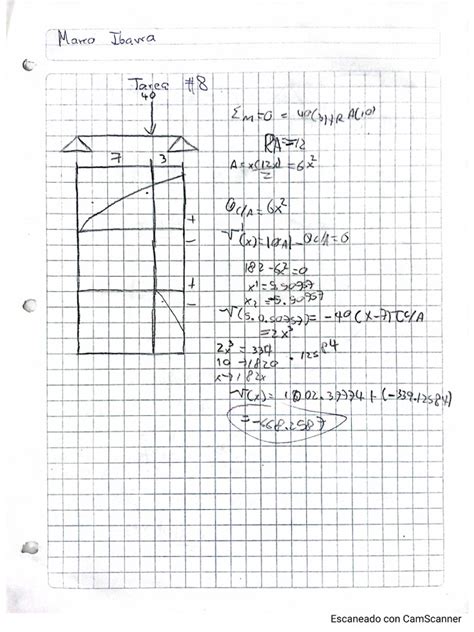 Marco Ibarra
Tarea #8
40
7 3
+
-
+
-
ΣM=0 = 40(3)+RA(10)
RA=-12
A= x(12x) = 6x²
2
θC/A = 6x²
(x)=|θA|-θC/A=0
182-6x²=0
x¹=5.50757
x₂=-5.50757
(5.50757)= -40(x-7)TC/A
=2x³
2x³ = 334.12584
10 → 1820
x → 182x
(x)= 1002.37774 + (-339.12584)
= -668.2587
Escaneado con CamScanner